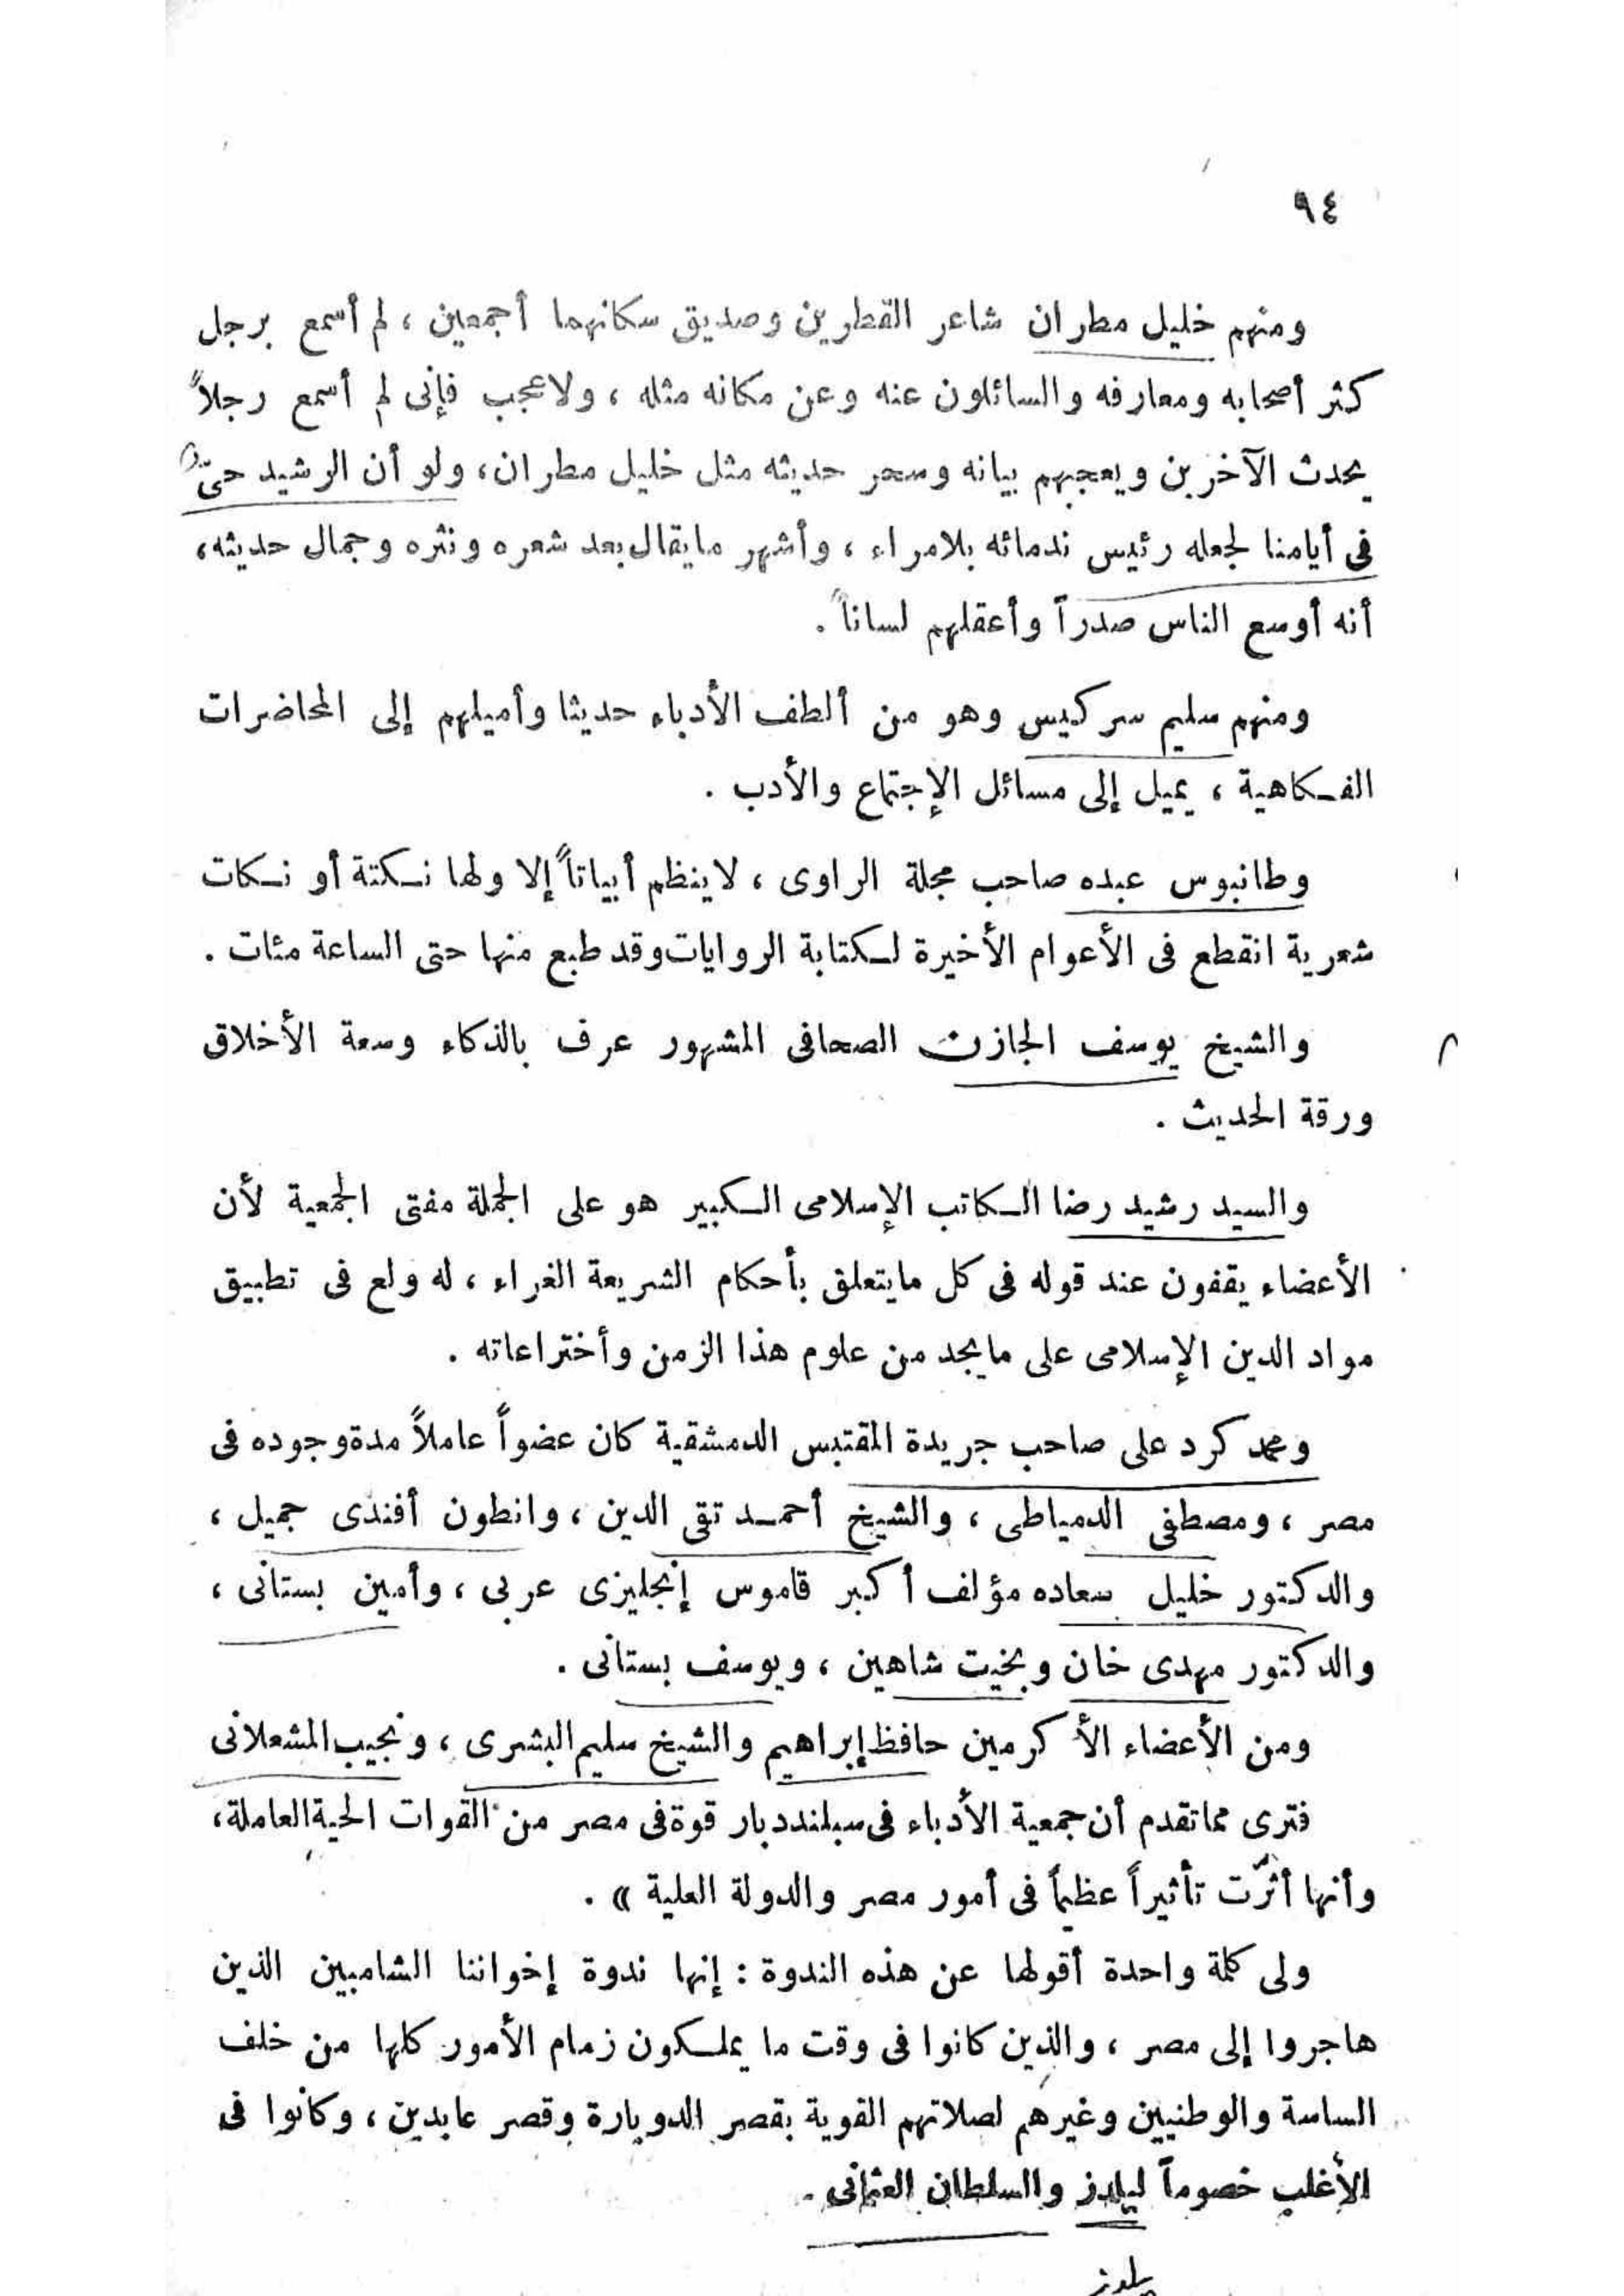 ٩٤
ومنهم خليل مطران شاعر القطرين وصديق سكانهما أجمعين ، لم أسمع برجل
كثر أصحابه ومعارفه والسائلون عنه وعن مكانه مثله ، ولا عجب فإنى لم أسمع رجلاً
يحدث الآخرين ويعجبهم بيانه وسحر حديثه مثل خليل مطران ، ولو أن الرشيد حىّ
فى أيامنا لجعله رئيس ندمائه بلا مراء ، وأشهر ما يقال بعد شعره ونثره وجمال حديثه ،
أنه أوسع الناس صدراً وأعقلهم لساناً .
ومنهم سليم سركيس وهو من ألطف الأدباء حديثا وأميلهم إلى المحاضرات
الفكاهية ، يميل إلى مسائل الإجتماع والأدب .
وطانبوس عبده صاحب مجلة الراوى ، لا ينظم أبياتاً إلا ولها نكتة أو نكات
شعرية انقطع فى الأعوام الأخيرة لكتابة الروايات وقد طبع منها حتى الساعة مئات .
والشيخ يوسف الجازن الصحافى المشهور عرف بالذكاء وسعة الأخلاق
ورقة الحديث .
والسيد رشيد رضا الكاتب الإسلامى الكبير هو على الجملة مفتى الجمعية لأن
الأعضاء يقفون عند قوله فى كل ما يتعلق بأحكام الشريعة الغراء ، له ولع فى تطبيق
مواد الدين الإسلامى على ما يجد من علوم هذا الزمن وأختراعاته .
ومحمد كرد على صاحب جريدة المقتبس الدمشقية كان عضواً عاملاً مدة وجوده فى
مصر ، ومصطفى الدمياطى ، والشيخ أحمد تقى الدين ، وانطون أفندى جميل ،
والدكتور خليل سعاده مؤلف أكبر قاموس إنجليزى عربى ، وأمين بستانى ،
والدكتور مهدى خان وبخيت شاهين ، ويوسف بستانى .
ومن الأعضاء الأكرمين حافظ إبراهيم والشيخ سليم البشرى ، ونجيب المشعلانى
فترى مما تقدم أن جمعية الأدباء فى سبلندد بار قوة فى مصر من القوات الحية العاملة ،
وأنها أثرّت تأثيراً عظيماً فى أمور مصر والدولة العلية » .
ولى كلمة واحدة أقولها عن هذه الندوة : إنها ندوة إخواننا الشاميين الذين
هاجروا إلى مصر ، والذين كانوا فى وقت ما يملكون زمام الأمور كلها من خلف
الساسة والوطنيين وغيرهم لصلاتهم القوية بقصر الدوبارة وقصر عابدين ، وكانوا فى
الأغلب خصوماً ليلدز والسلطان العثمانى .
يلدز